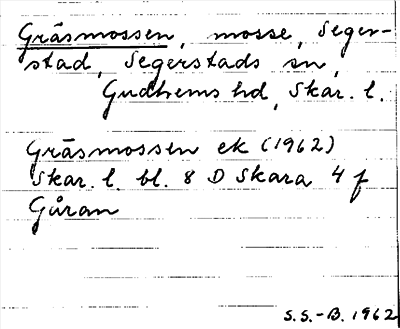 Gräsmossen, mosse, Seger-
stad, Segerstads sn,
Gudhems hd, Skar. l.
Gräsmossen ek (1962)
Skar. l. bl. 8 D Skara 4 f
Gåran
S.S.-B. 1962